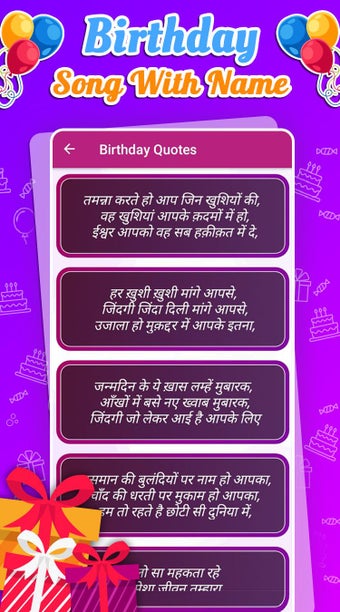 Birthday
Song With Name
Birthday Quotes
तमन्ना करते हो आप जिन खुशियों की,
वह खुशियां आपके क़दमों में हो,
ईश्वर आपको वह सब हक़ीक़त में दे,
हर ख़ुशी ख़ुशी मांगे आपसे,
जिंदगी जिंदा दिली मांगे आपसे,
उजाला हो मुक़द्दर में आपके इतना,
जन्मदिन के ये ख़ास लम्हें मुबारक,
आँखों में बसे नए ख्वाब मुबारक,
जिंदगी जो लेकर आई है आपके लिए
समान की बुलंदियों पर नाम हो आपका,
चाँद की धरती पर मुकाम हो आपका,
हम तो रहते है छोटी सी दुनिया में,
तो सा महकता रहे
जीवन तुम्हारा